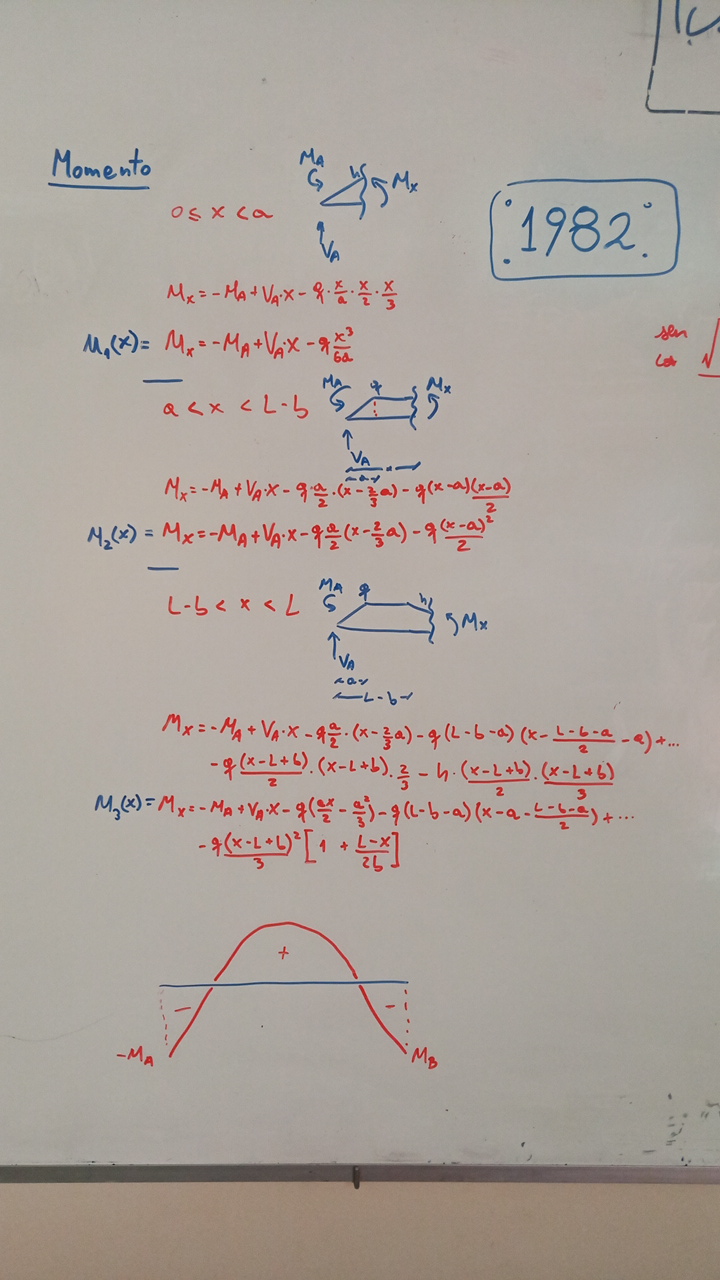 Momento
M_A h M_x
0 ≤ x < a
V_A
1982
M_x = -M_A + V_A·x - q·x/a·x/2·x/3
M_1(x) = M_x = -M_A + V_A·x - q x³/6a
sen
cos √
M_A q M_x
a < x < L-b
V_A
a x
M_x = -M_A + V_A·x - q·a/2·(x-2/3a) - q(x-a)(x-a)/2
M_2(x) = M_x = -M_A + V_A·x - q a/2(x-2/3a) - q(x-a)²/2
M_A q h
L-b < x < L
M_x
V_A
a
L-b
M_x = -M_A + V_A·x - q a/2·(x-2/3a) - q(L-b-a)(x - L-b-a/2 - a) + ...
- q(x-L+b)/2·(x-L+b)·2/3 - h·(x-L+b)/2·(x-L+b)/3
M_3(x) = M_x = -M_A + V_A·x - q(ax/2 - a²/3) - q(L-b-a)(x-a-L-b-a/2) + ...
- q(x-L+b)²/3[1 + L-x/2b]
+
- -
-M_A M_B